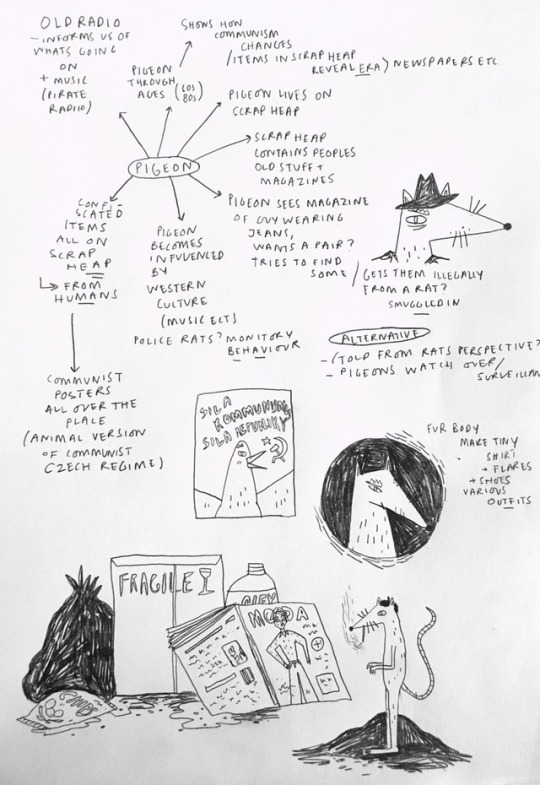 OLD RADIO
- INFORMS US OF
WHATS GOING
ON
+ MUSIC
(PIRATE
RADIO)
SHOWS HOW
COMMUNISM
CHANGES
/ITEMS IN SCRAP HEAP
REVEAL ERA) NEWSPAPERS ETC
PIGEON
THROUGH
AGES (60S
80S)
PIGEON LIVES ON
SCRAP HEAP
SCRAP HEAP
CONTAINS PEOPLES
OLD STUFF +
MAGAZINES
PIGEON
PIGEON SEES MAGAZINE
OF GUY WEARING
JEANS,
WANTS A PAIR?
TRIES TO FIND
SOME / GETS THEM ILLEGALLY
FROM A RAT?
SMUGGLED IN
CONFI-
SCATED
ITEMS
ALL ON
SCRAP
HEAP
FROM
HUMANS
PIGEON
BECOMES
INFLUENCED
BY
WESTERN
CULTURE
(MUSIC ECT)
POLICE RATS? MONITORY
BEHAVIOUR
ALTERNATIVE
- /TOLD FROM RATS PERSPECTIVE?
- PIGEONS WATCH OVER/
SURVEILLAN
COMMUNIST
POSTERS
ALL OVER THE
PLACE
(ANIMAL VERSION
OF COMMUNIST
CZECH REGIME)
SILA
KOMMUNUNG
SILA REPUBLIKY
FUR BODY
MAKE TINY
SHIRT
+ FLARES
+ SHOES
VARIOUS
OUTFITS
FRAGILE
MODA